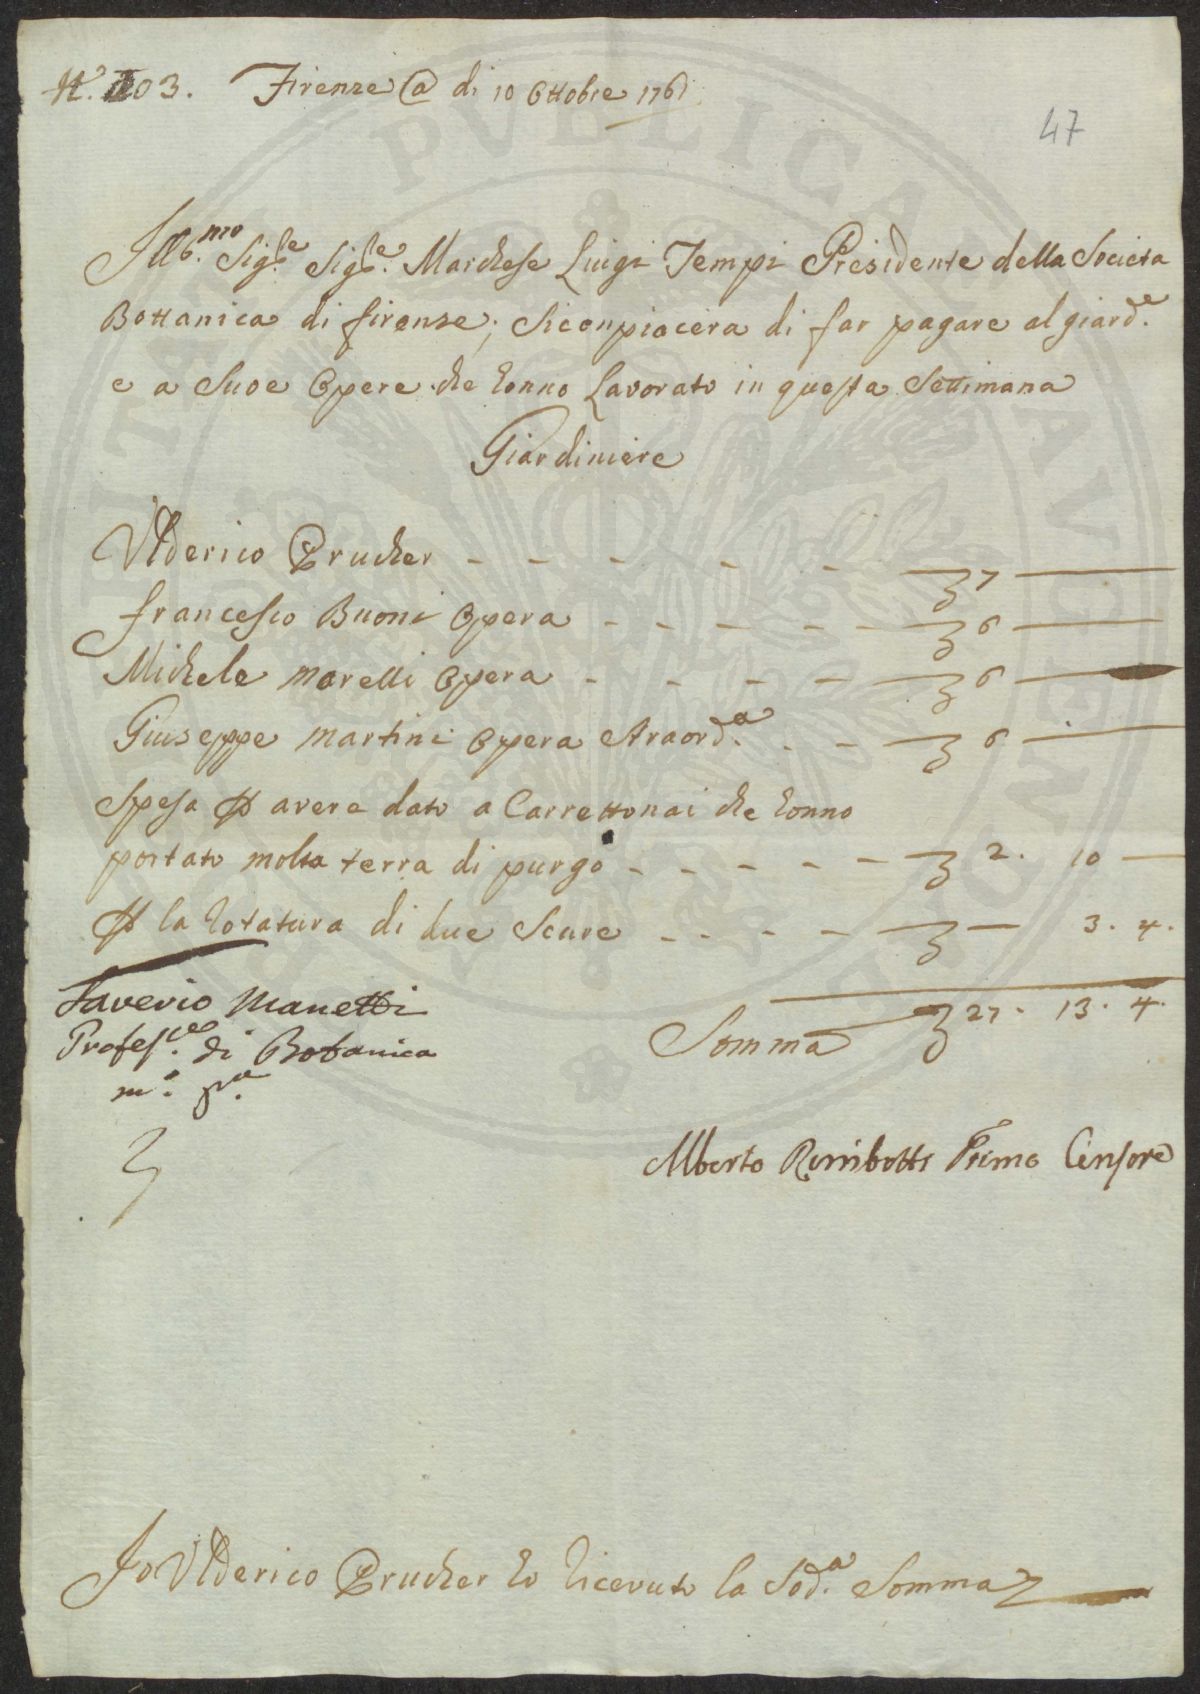 N.° 103. Firenze @ di 10 Ottobre 1761
47
Illb.mo Sig.re Sig.re Marchese Luigi Tempi Presidente della Societa
Bottanica di firenze; Si conpiacera di far pagare al giard.e
e a Suoe Opere che hanno Lavorato in questa Settimana
Giardiniere
Ulderico Prucher - - - - - 7
francesco Buoni Opera - - - - - 6
Michele Morelli Opera - - - - 6
Giuseppe Martini Opera Straord.a - - 6
Spesa p avere dato a Carrettonai che hanno
portato molta terra di purgo - - - - - 2. 10
p la rotatura di due Scure - - - - 3. 4.
Saverio Manetti
Profes.re di Botanica
m.o p.a
Somma 27. 13. 4.
Alberto Rimbotti Primo Censore
Io Ulderico Prucher ho ricevuto la Sod.a Somma